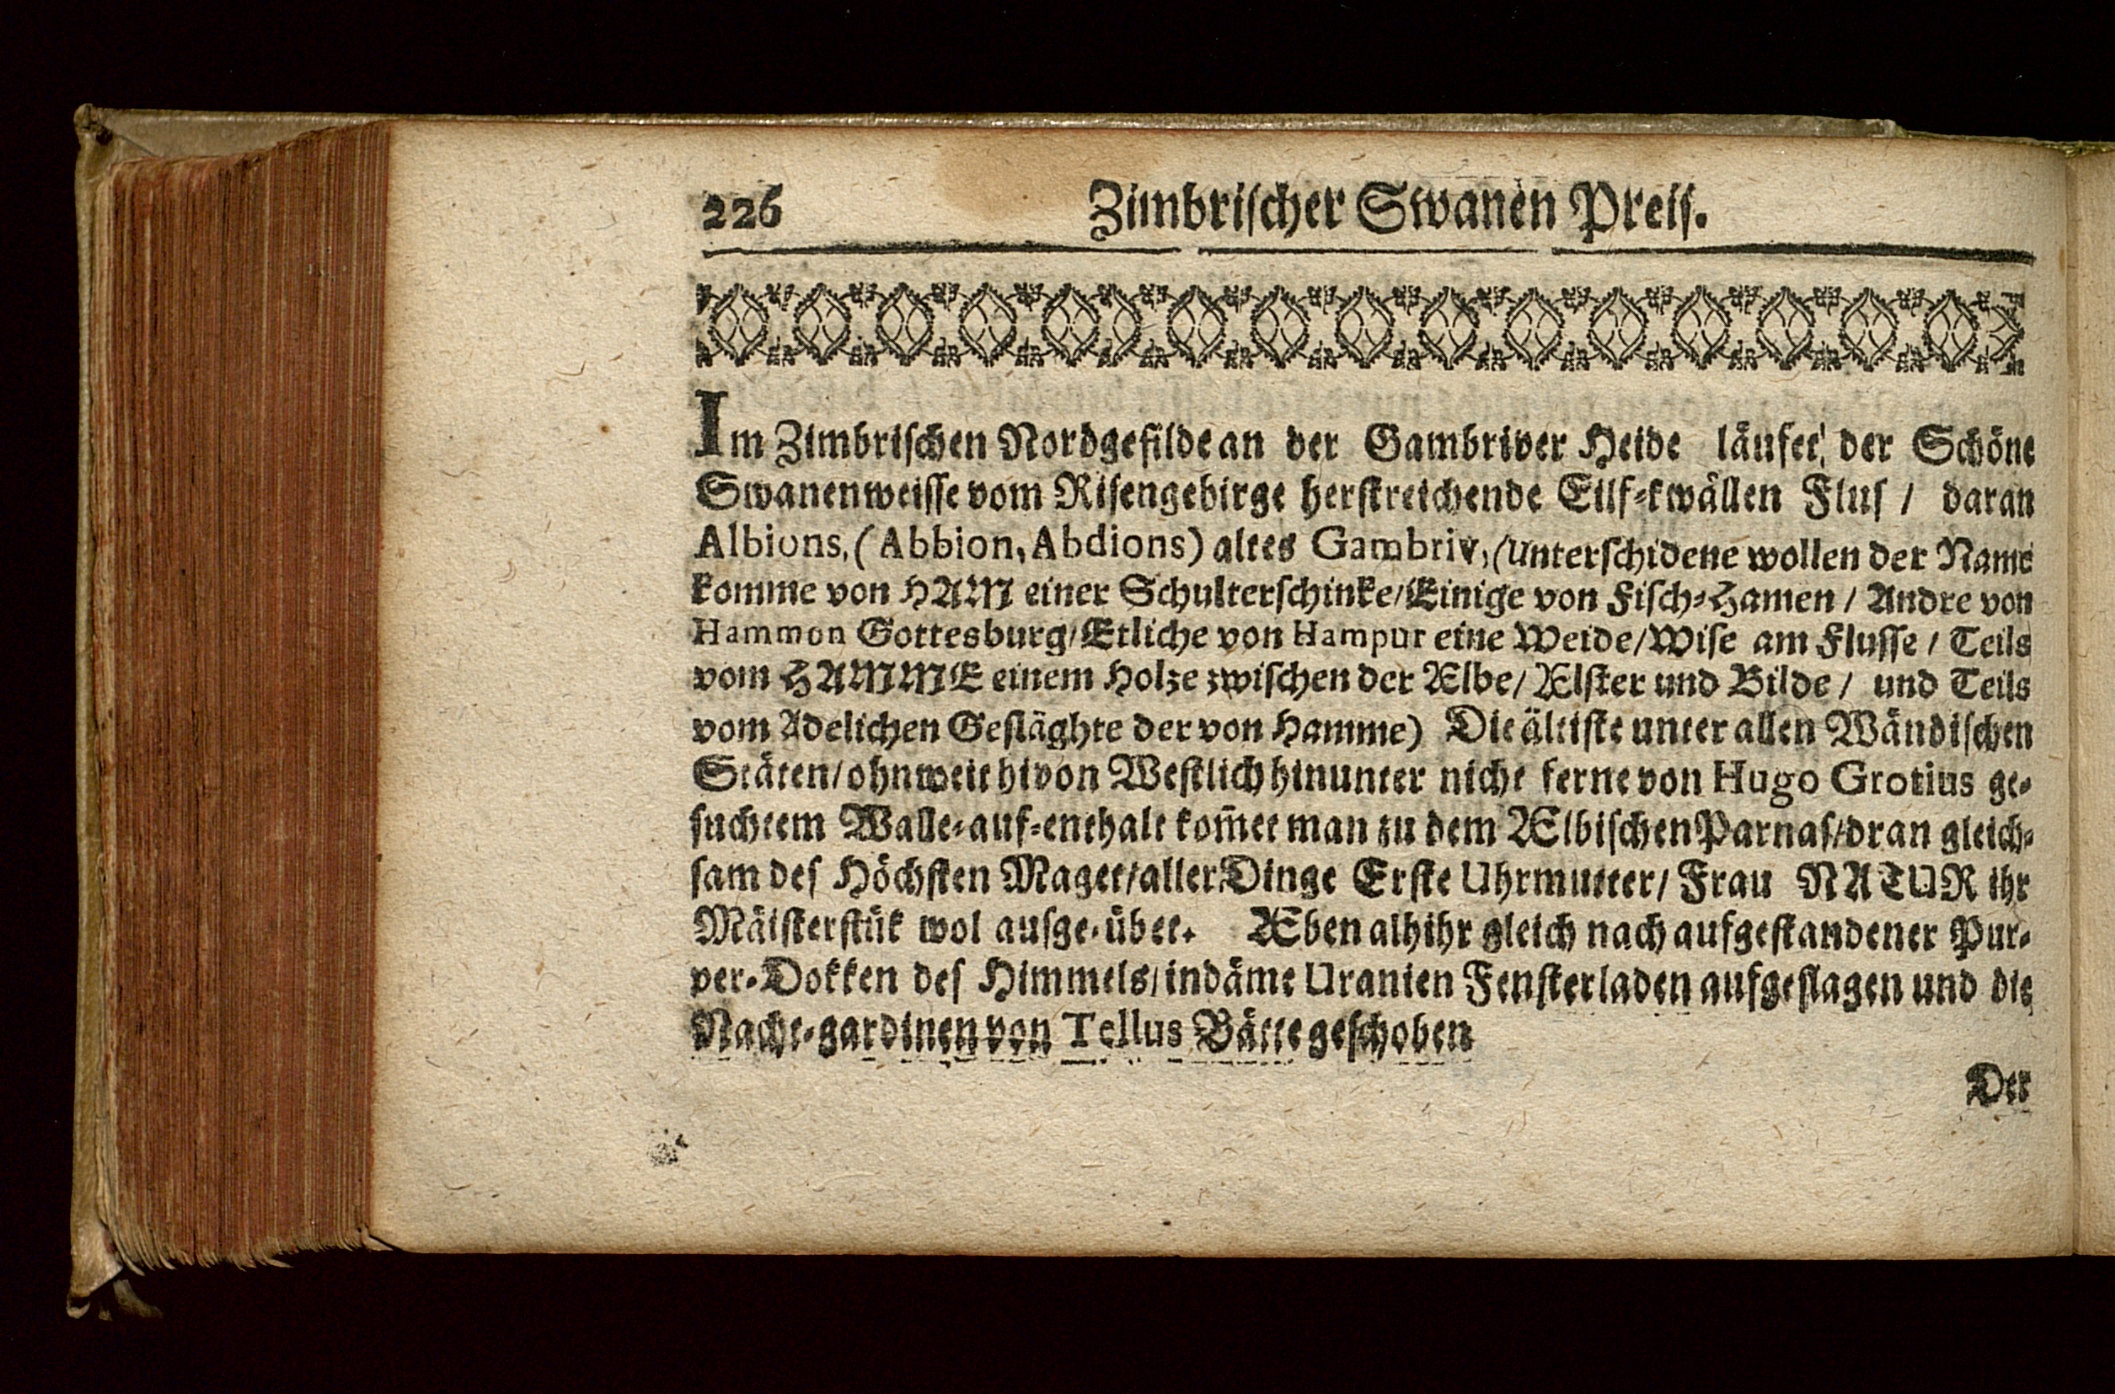 226 Zimbrischer Swanen Preis.
Im Zimbrischen Nordgefilde an der Gambriver Heide läufet der Schöne
Swanenweisse vom Risengebirge herstreichende Eilf-kwällen Flus / daran
Albions, (Abbion, Abdions) altes Gambriv, (Unterschidene wollen der Name
komme von HAM einer Schulterschinke/Einige von Fisch-Hamen / Andre von
Hammon Gottesburg/Etliche von Hampur eine Weide/Wise am Flusse / Teils
vom HAMME einem Holze zwischen der Ælbe/ Ælster und Bilde / und Teils
vom Adelichen Gesläghte der von Hamme) Die ältiste unter allen Wändischen
Stäten/ohnweit hivon Westlich hinunter nicht ferne von Hugo Grotius ge-
suchtem Walle-auf-enthalt kom̄et man zu dem Ælbischen Parnas/dran gleich-
sam des Höchsten Maget/aller Dinge Erste Uhrmutter/ Frau NATUR ihr
Mäisterstük wol ausge-übet. Æben alhihr gleich nach aufgestandener Pur-
per-Dokken des Himmels/indäme Uranien Fensterladen aufgeslagen und die
Nacht-gardinen von Tellus Bätte geschoben
Der